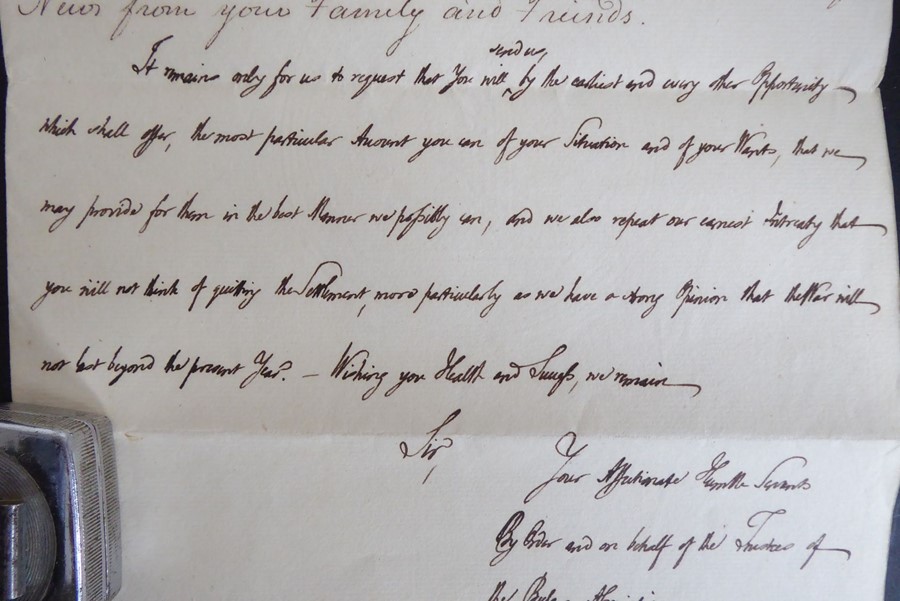 News from your Family and Friends.
send us,
It remains only for us to request that You will by the earliest and every other Opportunity
which shall offer, the most particular Account you can of your Situation and of your Wants, that we
may provide for them in the best Manner we possibly can, and we also repeat our earnest Intreaty that
you will not think of quitting the Settlement, more particularly as we have a strong Opinion that the War will
not last beyond the present Year. – Wishing you Health and Success, we remain
Sir,
Your Affectionate Humble Servants
By Order and on behalf of the Trustees of
the